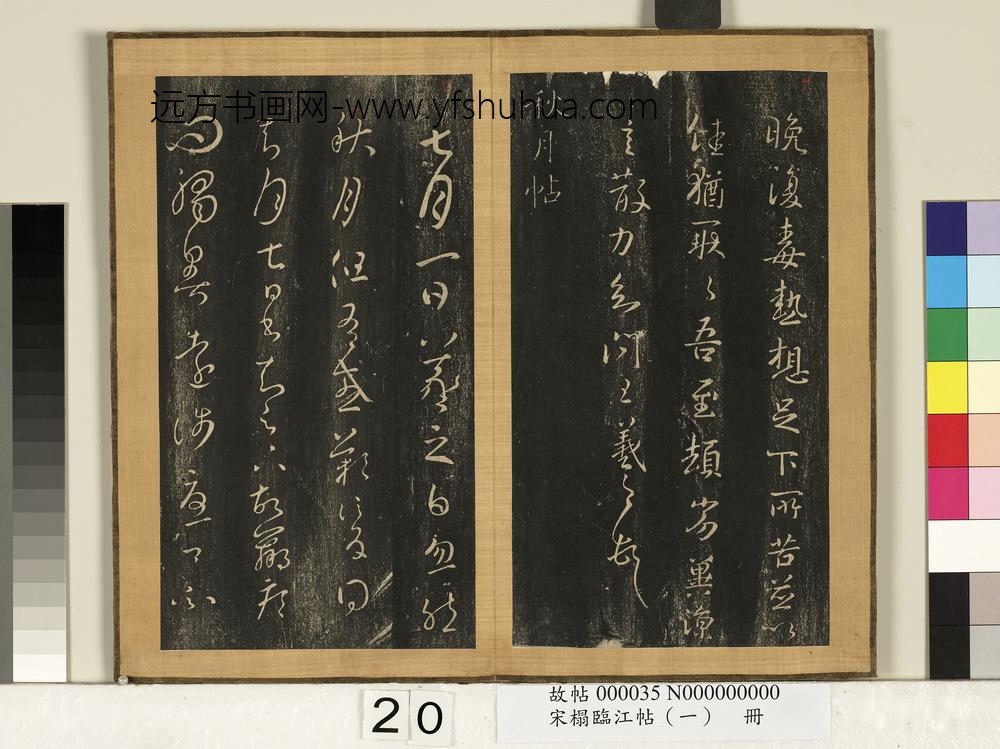 远方书画网-www.yfshuhua.com
晚復毒熱想足下所苦並以
佳猶耿々吾至頓劣冀涼
言散力知問王羲之報
秋月帖
七月一日羲之白忽然
秋月但有感歎信反得
去月七日書知足下故羸疾
問觸暑遠涉憂卿不
20
故帖 000035 N000000000
宋榻臨江帖（一） 冊